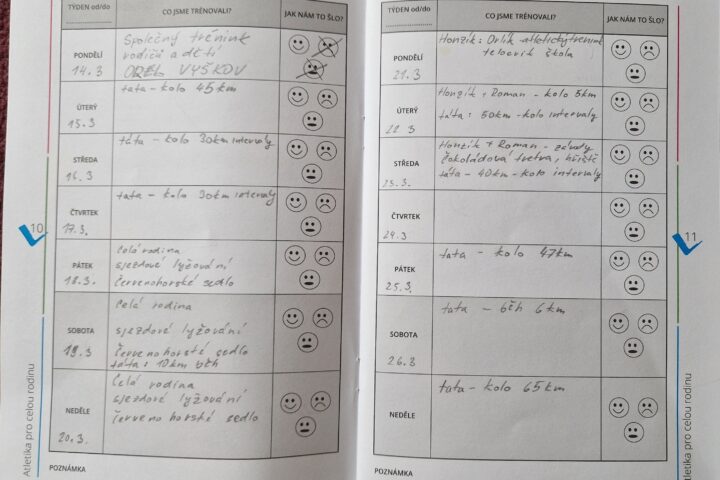 TÝDEN od/do
CO JSME TRÉNOVALI?
JAK NÁM TO ŠLO?
PONDĚLÍ
14.3
Společný trénink
rodičů a dětí
OREL VYŠKOV
ÚTERÝ
15.3
tata - kolo 45km
STŘEDA
16.3
táta - kolo 30km intervaly
ČTVRTEK
17.3.
tata - kolo 30km intervaly
PÁTEK
18.3.
Celá rodina
sjezdové lyžování
červenohorské sedlo
SOBOTA
19.3
Celá rodina
sjezdové lyžování
červenohorské sedlo
táta: 10km běh
NEDĚLE
20.3.
Celá rodina
sjezdové lyžování
červenohorské sedlo
POZNÁMKA
10
Atletika pro celou rodinu
TÝDEN od/do
CO JSME TRÉNOVALI?
JAK NÁM TO ŠLO?
PONDĚLÍ
21.3
Honzík: Orlík atletický trénink
telocvik škola
ÚTERÝ
22 3
Honzík + Roman - kolo 5km
táta: 50km - kolo intervaly
STŘEDA
23.3.
Honzík + Roman - závody
čokoládová tretra, hřiště
táta - 40km - kolo intervaly
ČTVRTEK
24.3
PÁTEK
25.3.
tata - kolo 47km
SOBOTA
26.3
tata - běh 6km
NEDĚLE
tata - kolo 65km
POZNÁMKA
11
Atletika pro celou rodinu